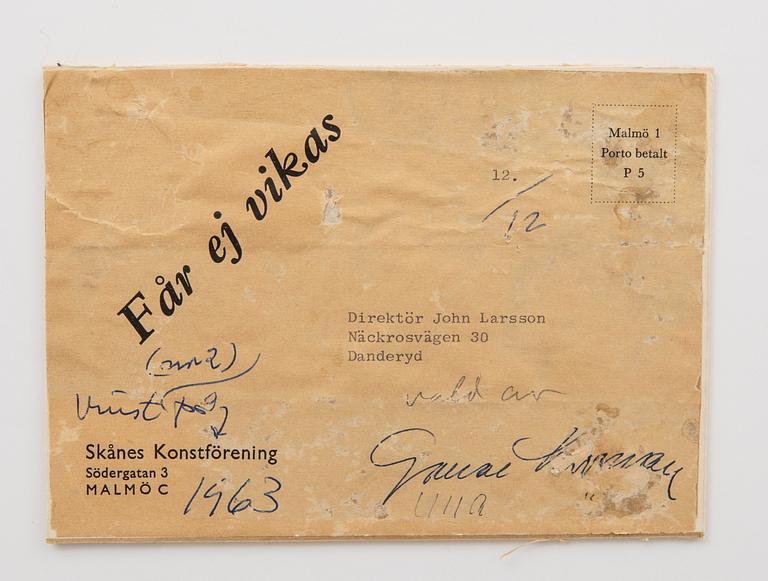 Får ej vikas
Malmö 1
Porto betalt
P 5
12.
/12
Direktör John Larsson
Näckrosvägen 30
Danderyd
(nr 2)
vald av
Skånes Konstförening
Södergatan 3
MALMÖ C
1963